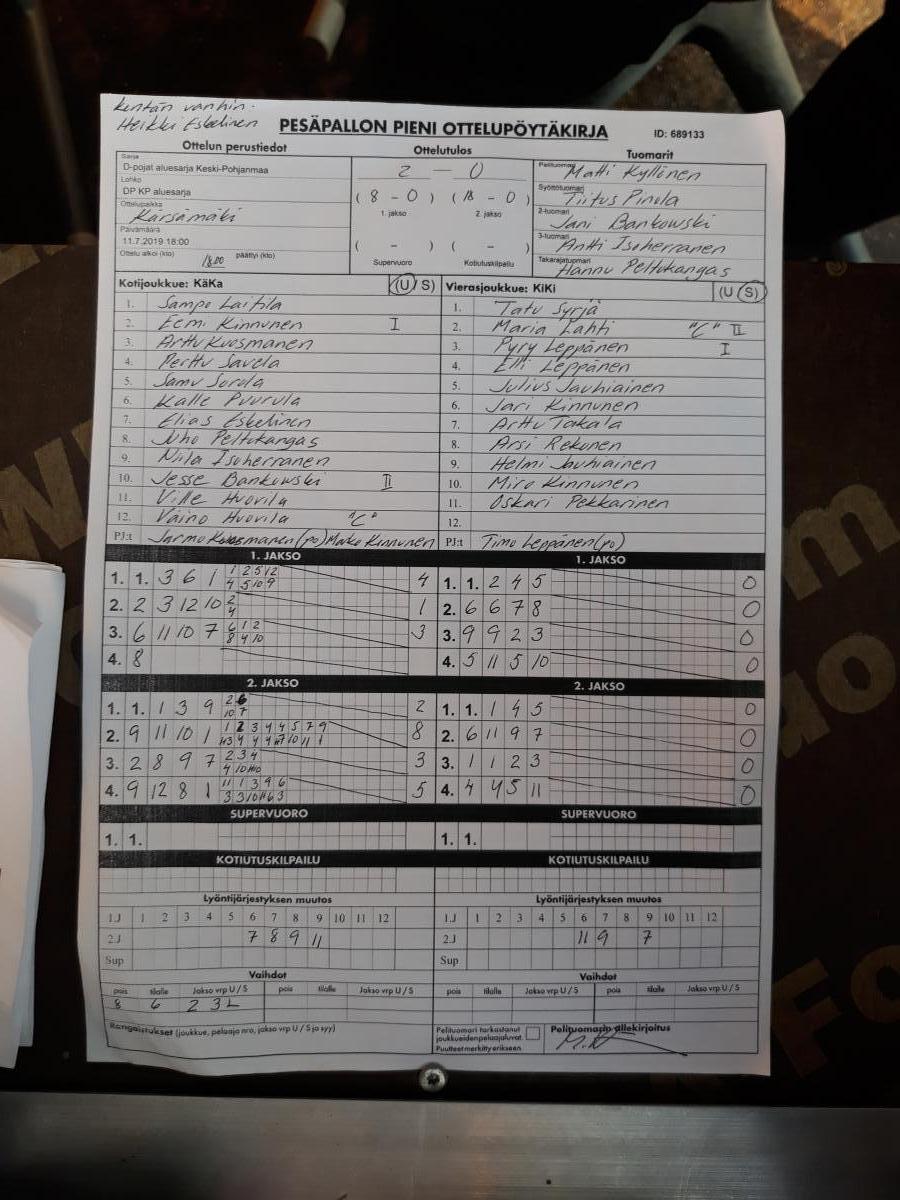 Kentän vanhin.
Heikki Eskelinen
PESÄPALLON PIENI OTTELUPÖYTÄKIRJA
ID: 689133
Ottelun perustiedot
Sarja
D-pojat aluesarja Keski-Pohjanmaa
Lohko
DP KP aluesarja
Ottelupaikka
Kärsämäki
Päivämäärä
11.7.2019 18:00
Ottelu alkoi (klo) 18.00 päättyi (klo)
Ottelutulos
2 - 0
(8 - 0) (18 - 0)
1. jakso 2. jakso
( - ) ( - )
Supervuoro Kotiutuskilpailu
Tuomarit
Pelituomari Matti Kyllönen
Syöttötuomari Tiitus Pinola
2-tuomari Jani Bankowski
3-tuomari Antti Isoherranen
Takarajatuomari Hannu Peltokangas
Kotijoukkue: KäKa (U/S)
1. Sampo Laitila
2. Eemi Kinnunen I
3. Arttu Kuosmanen
4. Perttu Savela
5. Samu Jorula
6. Kalle Puurula
7. Elias Eskelinen
8. Juho Peltokangas
9. Niila Isoherranen
10. Jesse Bankowski II
11. Ville Huovila
12. Väinö Huovila "C"
PJ:t Jarmo Kuosmanen (po) Marko Kinnunen
Vierasjoukkue: KiKi (U/S)
1. Tatu Syrjä
2. Maria Lahti "C" II
3. Pyry Leppänen I
4. Elli Leppänen
5. Julius Jauhiainen
6. Jari Kinnunen
7. Arttu Takala
8. Arsi Rekonen
9. Helmi Jauhiainen
10. Miro Kinnunen
11. Oskari Pekkarinen
12.
PJ:t Timo Leppänen (po)
1. JAKSO
1. 1. 3 6 1 1 2 5 12 4
4 5 10 9
2. 2 3 12 10 2 1
4
3. 6 11 10 7 6 1 2 3
8 4 10
4. 8
1. JAKSO
1. 1. 2 4 5 0
2. 6 6 7 8 0
3. 9 9 2 3 0
4. 5 11 5 10 0
2. JAKSO
1. 1. 1 3 9 2 6 2
10 7
2. 9 11 10 1 1 2 3 4 4 5 7 9 8
3. 2 8 9 7 2 3 4 3
4. 9 12 8 1 11 1 3 9 6 5
2. JAKSO
1. 1. 1 4 5 0
2. 6 11 9 7 0
3. 1 1 2 3 0
4. 4 4 5 11 0
SUPERVUORO
1. 1.
SUPERVUORO
1. 1.
KOTIUTUSKILPAILU
KOTIUTUSKILPAILU
Lyöntijärjestyksen muutos
1.J 1 2 3 4 5 6 7 8 9 10 11 12
2.J 7 8 9 11
Sup
Lyöntijärjestyksen muutos
1.J 1 2 3 4 5 6 7 8 9 10 11 12
2.J 11 9 7
Sup
Vaihdot
pois tilalle Jakso vrp U / S pois tilalle Jakso vrp U / S
8 6 2 3 L
Vaihdot
pois tilalle Jakso vrp U / S pois tilalle Jakso vrp U / S
Rangaistukset (joukkue, pelaaja nro, jakso vrp U / S ja syy)
Pelituomari tarkastanut
joukkueiden pelaajaluvat.
Puutteet merkitty erikseen.
Pelituomarin allekirjoitus